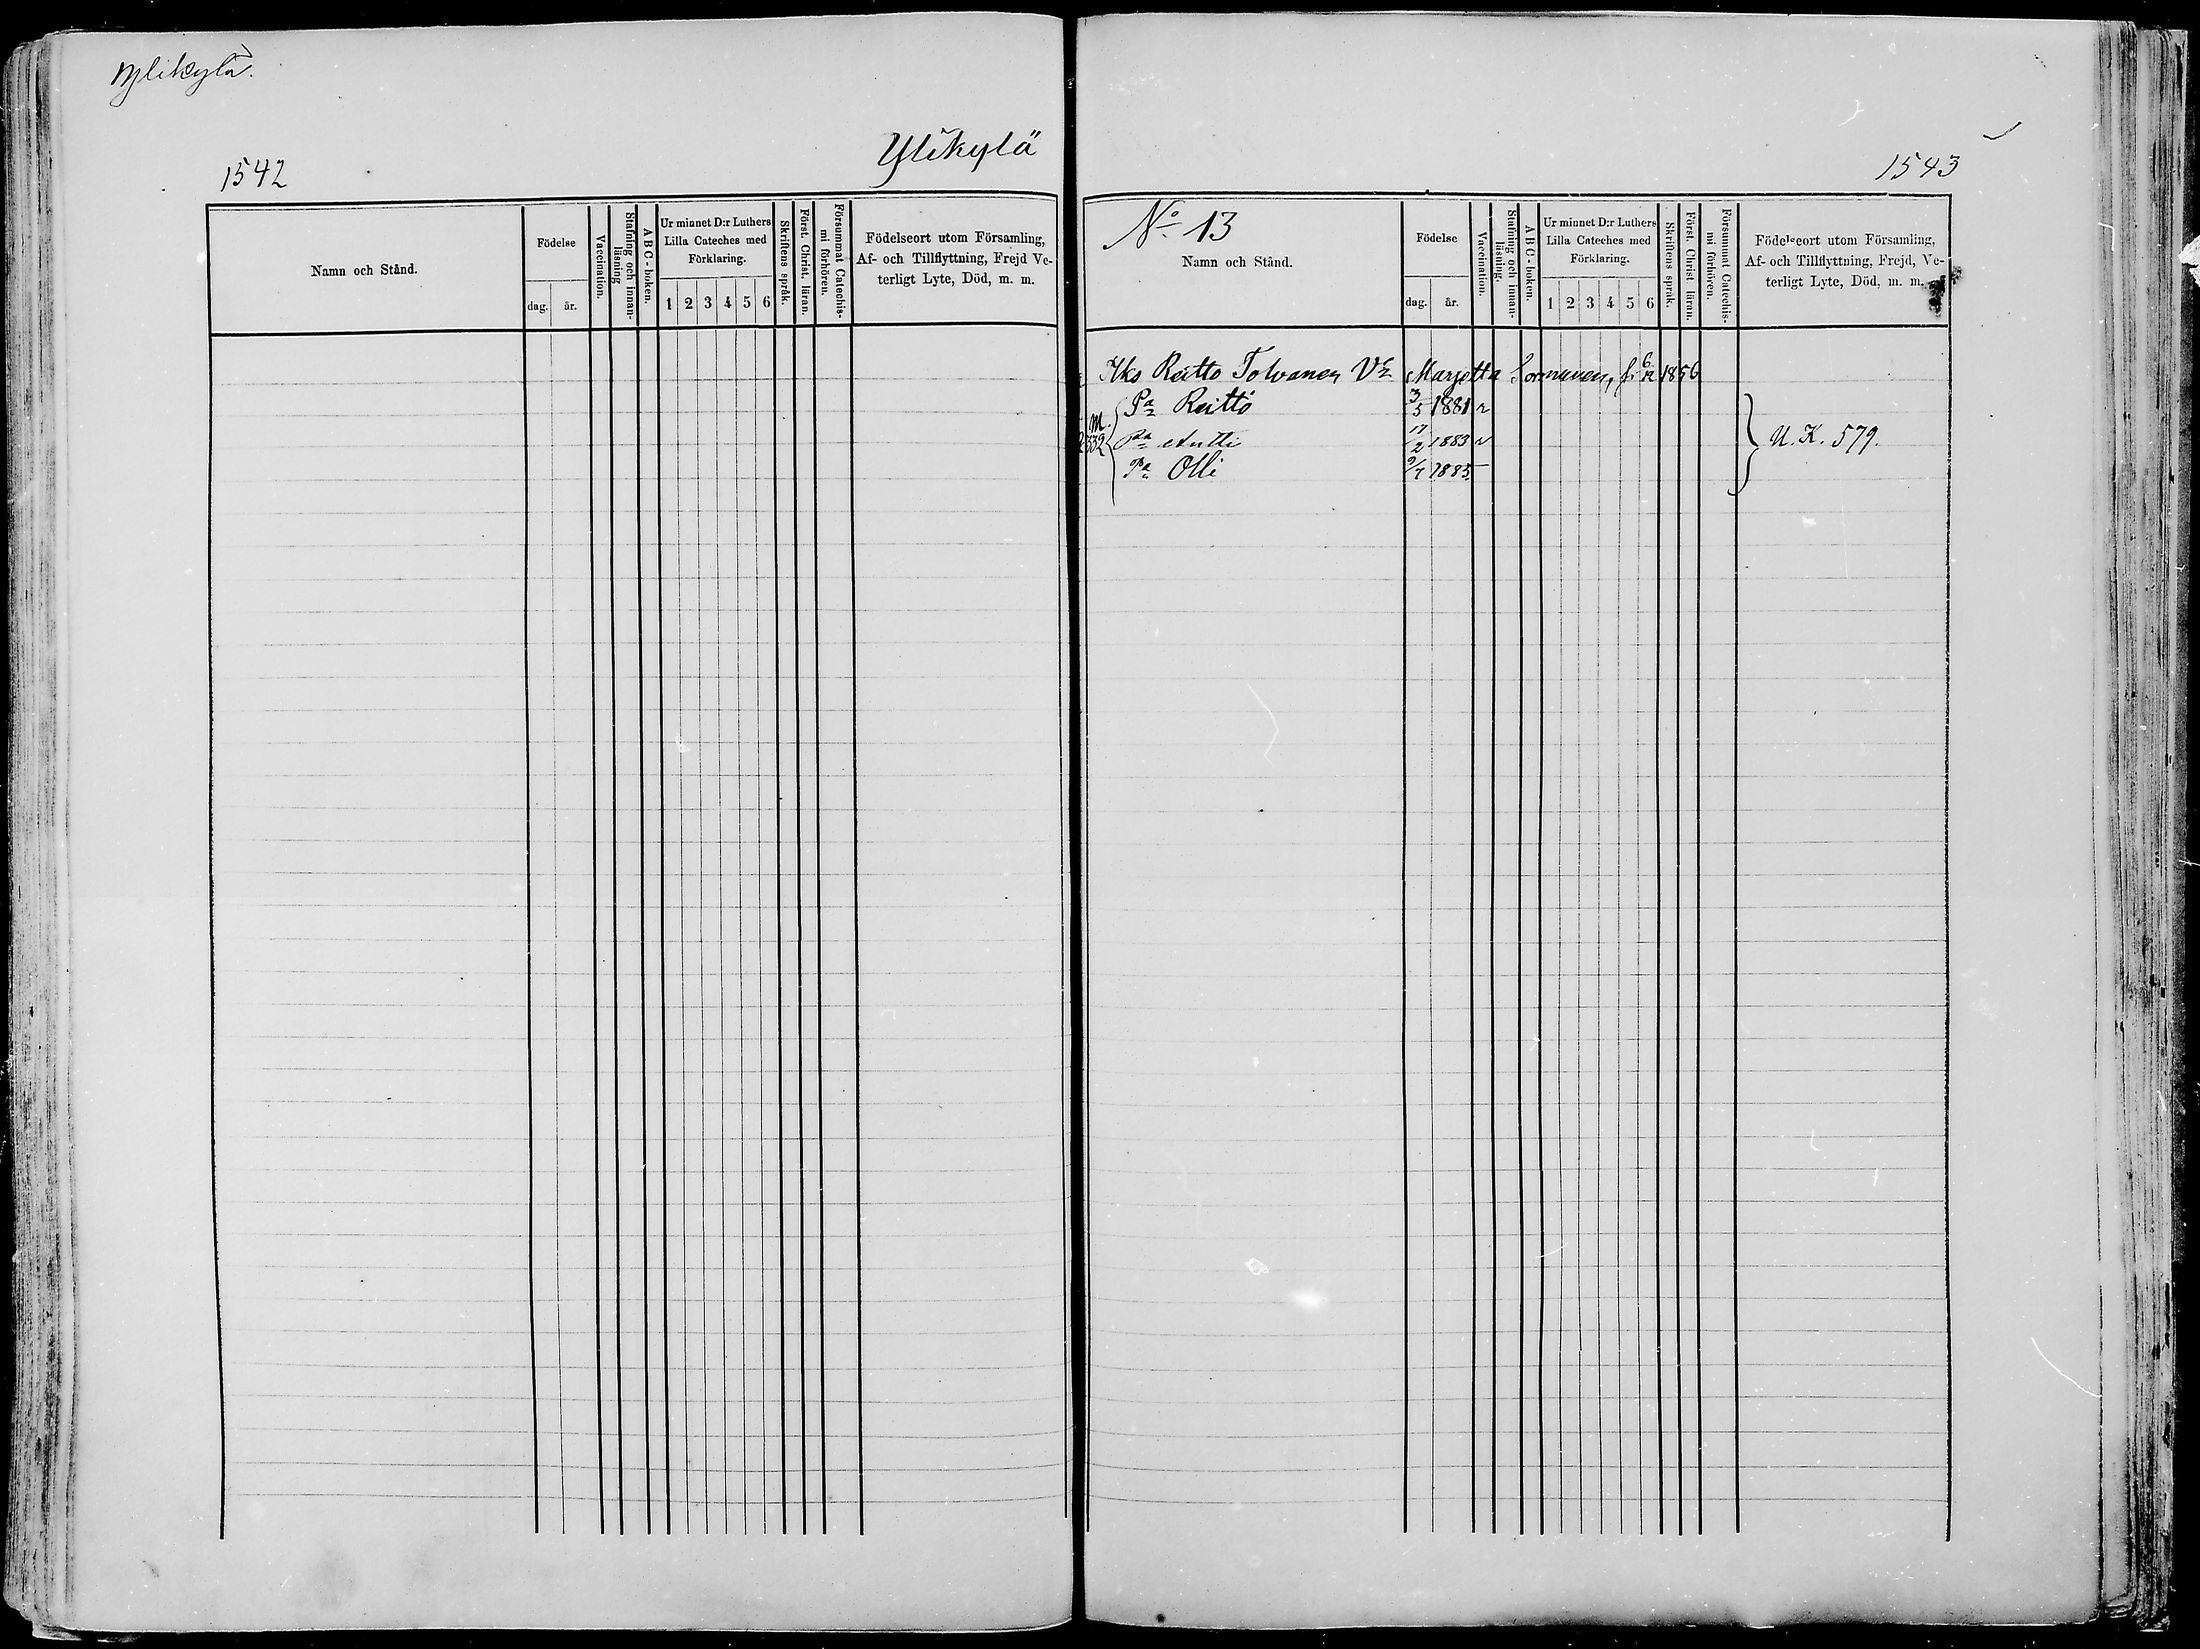 Ylikylä.
Ylikylä
1542
Namn och Stånd.
Födelse
dag. år.
Vaccination.
Stafning och innan-
läsning
A B C - boken.
Ur minnet D:r Luthers
Lilla Cateches med
Förklaring.
1 2 3 4 5 6
Skriftens språk.
Först. Christ. läran.
Försummat Catechis-
mi förhören.
Födelseort utom Församling,
Af- och Tillflyttning, Frejd Ve-
terligt Lyte, Död, m. m.
1543
No 13
Namn och Stånd.
Födelse
dag. år.
Vaccination.
Stafning och innan-
läsning.
A B C - boken.
Ur minnet D:r Luthers
Lilla Cateches med
Förklaring.
1 2 3 4 5 6
Skriftens språk.
Först. Christ läran.
Försummat Catechis-
mi förhören.
Födelseort utom Församling,
Af- och Tillflyttning, Frejd, Ve-
terligt Lyte, Död, m. m.
Reitto Tolvanen Marjetta Sormunen, f. 6/12 1856
Pa Reitto 3/5 1881 v
m. Pa Antti 17/2 1883 v U. K. 579.
Pa Olli 1885 –